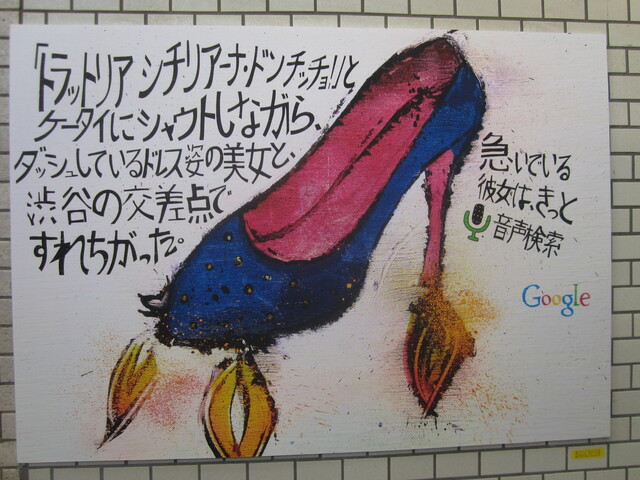 「トラットリア シチリアーナ・ドンチッチョ!」と
ケータイにシャウトしながら、
ダッシュしているドレス姿の美女と、
渋谷の交差点で
すれちがった。
急いでいる
彼女は、きっと
音声検索
Google